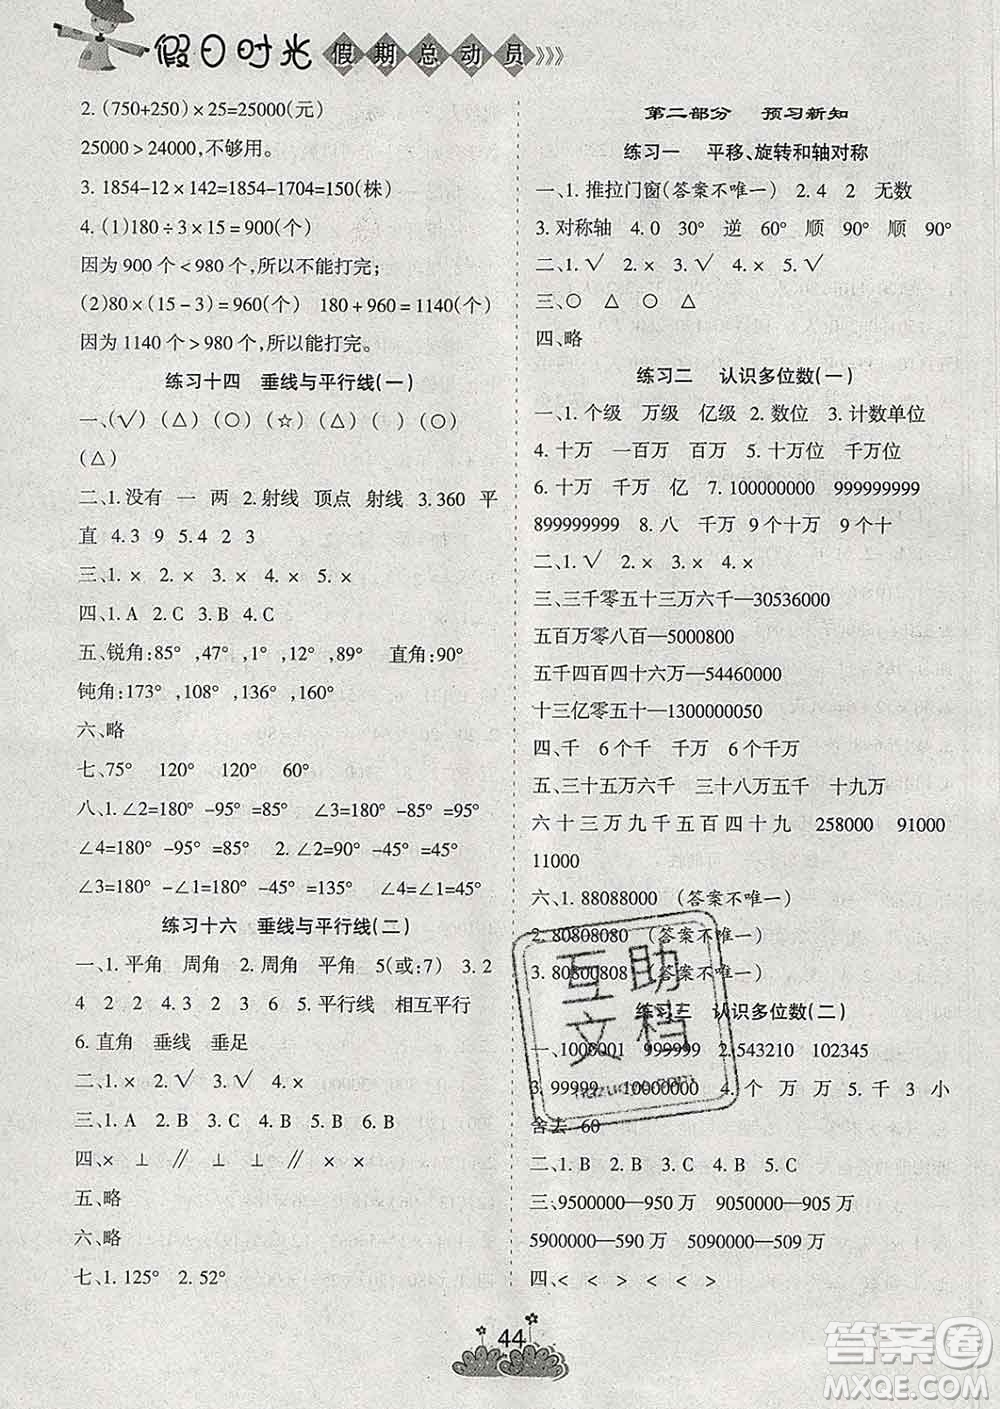 假日时光 假期总动员
2. (750+250)×25=25000(元)
25000＞24000,不够用。
3. 1854-12×142=1854-1704=150(株)
4. (1)180÷3×15=900(个)
因为 900 个＜980 个,所以不能打完;
(2)80×(15-3)=960(个) 180+960=1140(个)
因为 1140 个＞980 个,所以能打完。
练习十四 垂线与平行线(一)
一、(√) (△) (○) (☆) (△) ( ) (○)
(△)
二、1.没有 一 两 2.射线 顶点 射线 3.360 平
直 4.3 9 5.4 2 3
三、1. × 2. × 3. × 4. √ 5. ×
四、1. A 2. C 3. B 4. C
五、锐角:85° ,47° ,1° ,12° ,89° 直角:90°
钝角:173° ,108° ,136° ,160°
六、略
七、75° 120° 120° 60°
八、1. ∠2=180° -95° =85° ∠3=180° -85° =95°
∠4=180° -95° =85° 2. ∠4=180° -135° =45°
∠3=180° -45° =135° ∠4=180° -135° =45°
练习十六 垂线与平行线(二)
一、1. 平角 周角 2. 周角 平角 5(或:7) 3. 2
4 2 2 4. 2 3 6 5. 平行线 相互平行
6. 直角 垂线 垂足
二、1. × 2. √ 3. √ 4. × 5. ×
三、1. C 2. A 3. C 4. B 5. B 6. B
四、× ⊥ ∥ ⊥ ∥ × ×
五、略
六、略
七、1. 125° 2. 52°
第二部分 预习新知
练习一 平移、旋转和轴对称
一、1. 推拉门窗(答案不唯一) 2. 4 2 无数
3. 对称轴 4. 0 30° 逆 60° 顺 90° 顺 90°
二、1. √ 2. √ 3. √ 4. × 5. √
三、○ △ ○ △
四、略
练习二 认识多位数(一)
一、1. 个级 万级 亿级 2. 数位 3. 计数单位
4. 十万 一百万 百万 5. 十万位 千万位
6. 十万 千万 亿 7. 100000000 999999999
899999999 8. 八 千万 9 个十万 9 个十
二、1. √ 2. × 3. × 4. √ 5. ×
三、三千零五十三万六千—30536000
五百万零八百—5000800
五千四百四十六万—54460000
十三亿零五十—1300000050
四、千 6 个千 万 6 个千万
五、三十五万 六万 四十万 十九万
六十三万九千五百四十九 258000 91000
11000
六、1. 88088000 (答案不唯一)
2. 80808080 (答案不唯一)
3. 80800808 (答案不唯一)
练习三 认识多位数(二)
一、1000001 999999 2. 543210 102345
3. 99999 10000000 4. 个 万 万 5. 千 3 小
舍去 60
二、1. B 2. B 3. C 4. B 5. C
三、9500000—950 万 9050000—905 万
5900000—590 万 5090000—509 万
四、＜ ＜ ＜ ＜ ＜ ＞
44
互助文档
答案圈
MXQE.COM